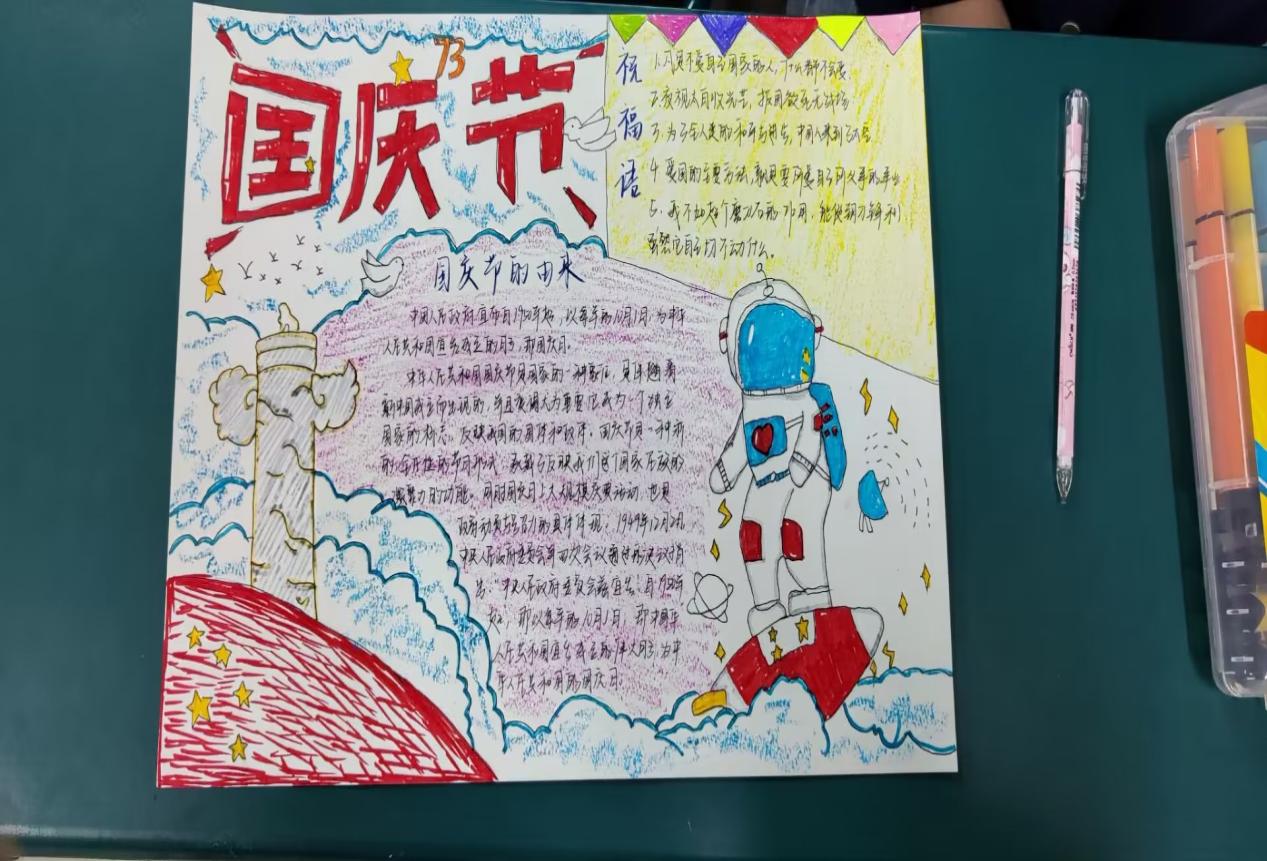 国庆节
73
祝福语
1.凡是不爱自己国家的人,什么都不会爱.
2.夜视太白收光芒,报国欲死无战场.
3.为了全人类的和平与
4.爱国的主要方法,就是要爱自己所从事的事业
5.我不如起个磨刀石的作用,能使钢刀锋利
虽然它自己切不动什么。
国庆节的由来
中国人民政府宣布自1950年起,以每年的10月1日,为中华
人民共和国宣告成立的日子,即国庆日.
中华人民共和国国庆节是国家的一种象征,是伴随着
新中国成立而出现的,并且变得尤为重要它成为一个独立
国家的标志,反映我国的国体和政体,国庆节是一种新
的、全民性的节日形式,承载了反映我们这个国家民族的
凝聚力的功能。同时国庆日上大规模庆典活动,也是
政府动员与号召力的具体体现,1949年12月2日
中央人民政府委员会第四次会议通过的决议
告:"中央人民政府委员会兹宣告:自1950年
起,即以每年的10月1日,即中华
人民共和国宣告成立的伟大日子,为中
华人民共和国的国庆日.